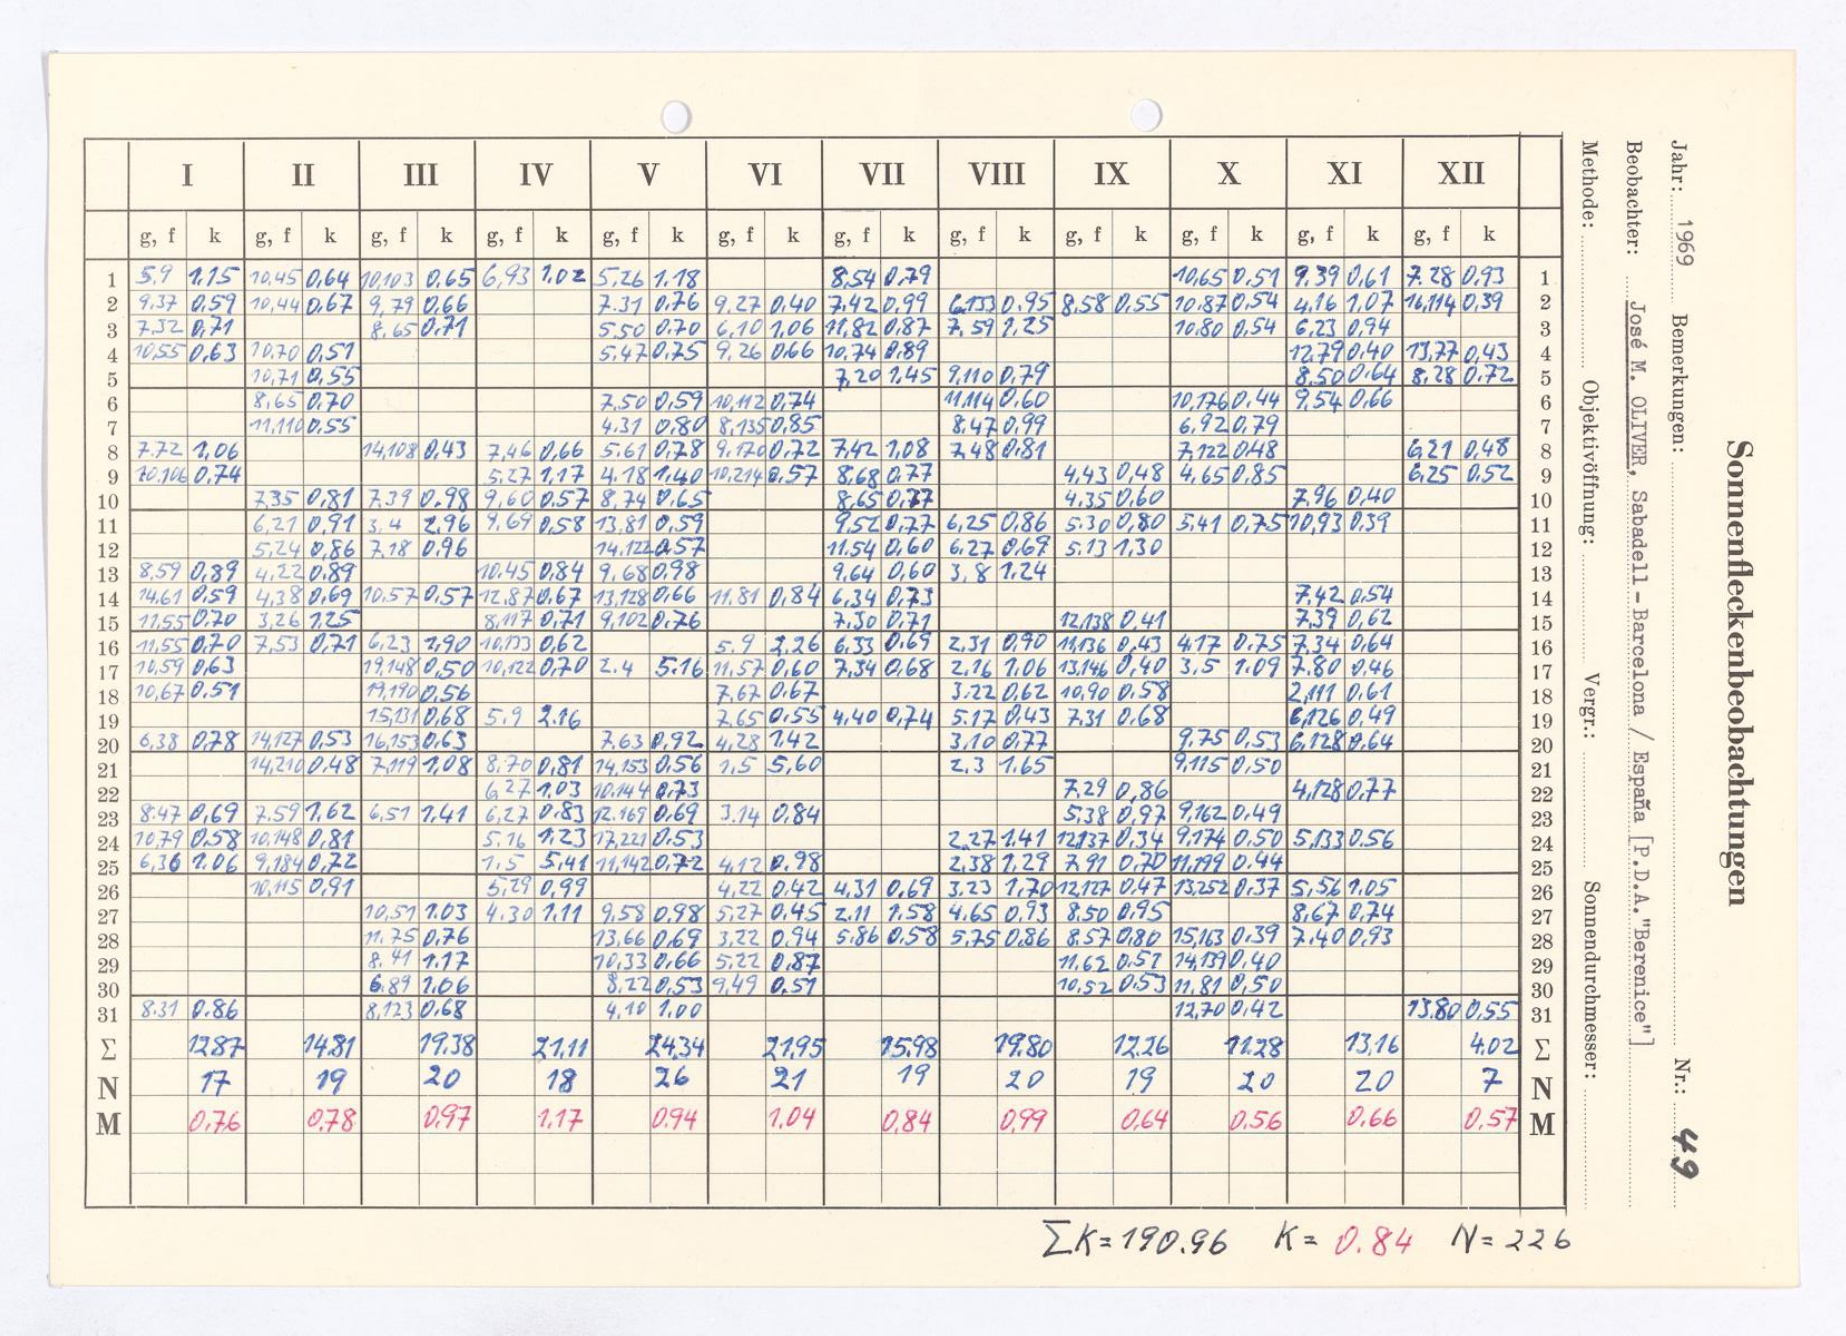 I II III IV V VI VII VIII IX X XI XII
g, f k g, f k g, f k g, f k g, f k g, f k g, f k g, f k g, f k g, f k g, f k g, f k
1 5,9 1,15 10,45 0,64 10,103 0,65 6,93 1,02 5,26 1,18 8,54 0,79 10,65 0,51 9,39 0,61 7,28 0,93 1
2 9,37 0,59 10,44 0,67 9,79 0,66 7,31 0,76 9,27 0,40 7,42 0,99 6,133 0,95 8,58 0,55 10,87 0,54 4,16 1,07 16,114 0,39 2
3 7,32 0,71 8,65 0,71 5,50 0,70 6,10 1,06 11,82 0,87 7,59 1,25 10,80 0,54 6,23 0,94 3
4 10,55 0,63 10,70 0,51 5,47 0,75 9,26 0,66 10,74 0,89 12,79 0,40 13,77 0,43 4
5 10,71 0,55 7,20 1,45 9,110 0,79 8,50 0,64 8,28 0,72 5
6 8,65 0,70 7,50 0,59 10,112 0,74 11,114 0,60 10,176 0,44 9,54 0,66 6
7 11,110 0,55 4,31 0,80 8,135 0,85 8,47 0,99 6,92 0,79 7
8 7,72 1,06 14,108 0,43 7,46 0,66 5,61 0,78 9,170 0,72 7,42 1,08 7,48 0,81 7,122 0,48 6,21 0,48 8
9 10,106 0,74 5,27 1,17 4,18 1,40 10,214 0,57 8,68 0,77 4,43 0,48 4,65 0,85 6,25 0,52 9
10 7,35 0,81 7,39 0,98 9,60 0,57 8,74 0,65 8,65 0,77 4,35 0,60 7,96 0,40 10
11 6,21 0,91 3,4 2,96 9,69 0,58 13,81 0,59 9,52 0,77 6,25 0,86 5,30 0,80 3,41 0,75 10,93 0,39 11
12 5,24 0,86 7,18 0,96 14,122 0,57 11,54 0,60 6,27 0,69 5,13 1,30 12
13 8,59 0,89 4,22 0,89 10,45 0,84 9,68 0,98 9,64 0,60 3,8 1,24 13
14 14,61 0,59 4,38 0,69 10,57 0,57 12,87 0,67 13,128 0,66 11,81 0,84 6,34 0,73 7,42 0,54 14
15 11,55 0,70 3,26 1,25 8,117 0,71 9,102 0,76 7,30 0,71 12,138 0,41 7,39 0,62 15
16 11,55 0,70 7,53 0,71 6,23 1,90 10,133 0,62 5,9 2,26 6,33 0,69 2,31 0,90 11,136 0,43 4,17 0,75 7,34 0,64 16
17 10,59 0,63 19,148 0,50 10,122 0,70 2,4 5,16 11,57 0,60 7,34 0,68 2,16 1,06 13,146 0,40 3,5 1,09 7,80 0,46 17
18 10,67 0,51 19,190 0,56 7,67 0,67 3,22 0,62 10,90 0,58 2,111 0,61 18
19 15,131 0,68 5,9 2,16 7,65 0,55 4,40 0,74 5,17 0,43 7,31 0,68 6,126 0,49 19
20 6,38 0,78 14,127 0,53 16,153 0,63 7,63 0,92 4,28 1,42 3,10 0,77 9,75 0,53 6,128 0,64 20
21 14,210 0,48 7,119 1,08 8,70 0,81 14,153 0,56 1,5 5,60 2,3 1,65 9,115 0,50 21
22 6,27 1,03 10,144 0,73 7,29 0,86 4,128 0,77 22
23 8,47 0,69 7,59 1,62 6,51 1,41 6,27 0,83 12,169 0,69 3,14 0,84 5,38 0,97 9,162 0,49 23
24 10,79 0,58 10,148 0,81 5,16 1,23 17,221 0,53 2,27 1,41 12,137 0,34 9,174 0,50 5,133 0,56 24
25 6,36 1,06 9,184 0,72 1,5 5,41 11,142 0,72 4,12 0,98 2,38 1,29 7,91 0,70 11,199 0,44 25
26 10,115 0,91 5,29 0,99 4,22 0,42 4,31 0,69 3,23 1,70 12,127 0,47 13,252 0,37 5,56 1,05 26
27 10,51 1,03 4,30 1,11 9,58 0,98 5,27 0,45 2,11 1,58 4,65 0,93 8,50 0,95 8,67 0,74 27
28 11,75 0,76 13,66 0,69 3,22 0,94 5,86 0,58 5,75 0,86 8,57 0,80 15,163 0,39 7,40 0,93 28
29 8,41 1,17 10,33 0,66 5,22 0,87 11,62 0,51 14,139 0,40 29
30 6,89 1,06 8,22 0,53 9,49 0,51 10,52 0,53 11,81 0,50 30
31 8,31 0,86 8,123 0,68 4,10 1,00 12,70 0,42 13,80 0,55 31
Σ 12,87 14,81 19,38 21,11 24,34 21,95 15,98 19,80 12,26 11,28 13,16 4,02 Σ
N 17 19 20 18 26 21 19 20 19 20 20 7 N
M 0,76 0,78 0,97 1,17 0,94 1,04 0,84 0,99 0,64 0,56 0,66 0,57 M
ΣK = 190.96 K = 0.84 N = 226
Sonnenfleckenbeobachtungen
Jahr: 1969 Bemerkungen: Nr.: 49
Beobachter: José M. OLIVER, Sabadell - Barcelona / España [P.D.A."Berenice"]
Methode: Objektivöffnung: Vergr.: Sonnendurchmesser: